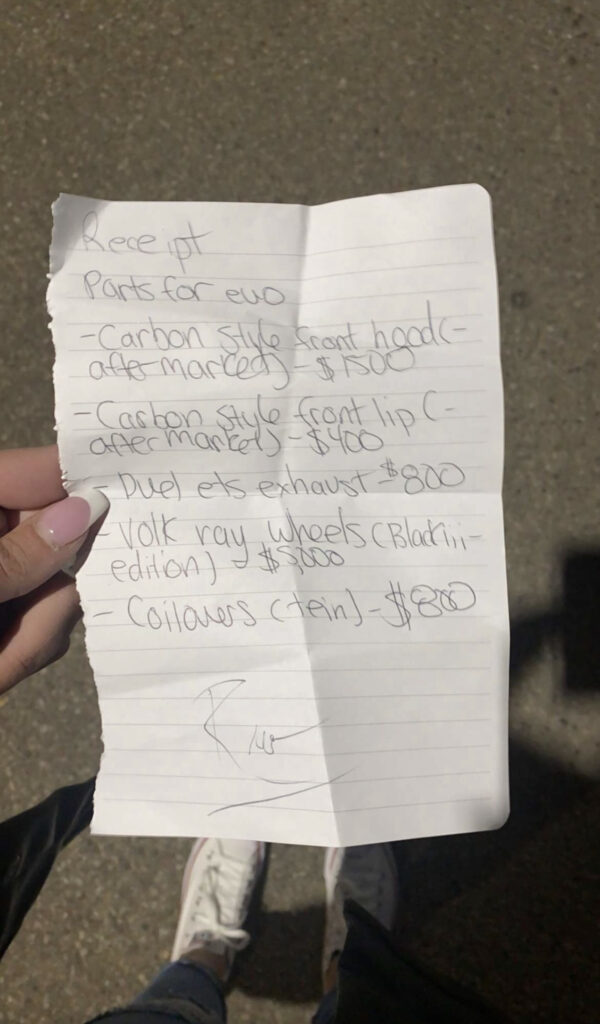 Receipt
Parts for evo
- Carbon style front hood (-
aftermarket) - $1500
- Carbon style front lip (-
aftermarket) - $400
- Duel ets exhaust - $800
- Volk ray wheels (Black iii -
edition) - $5,000
- Coilovers (tein) - $800